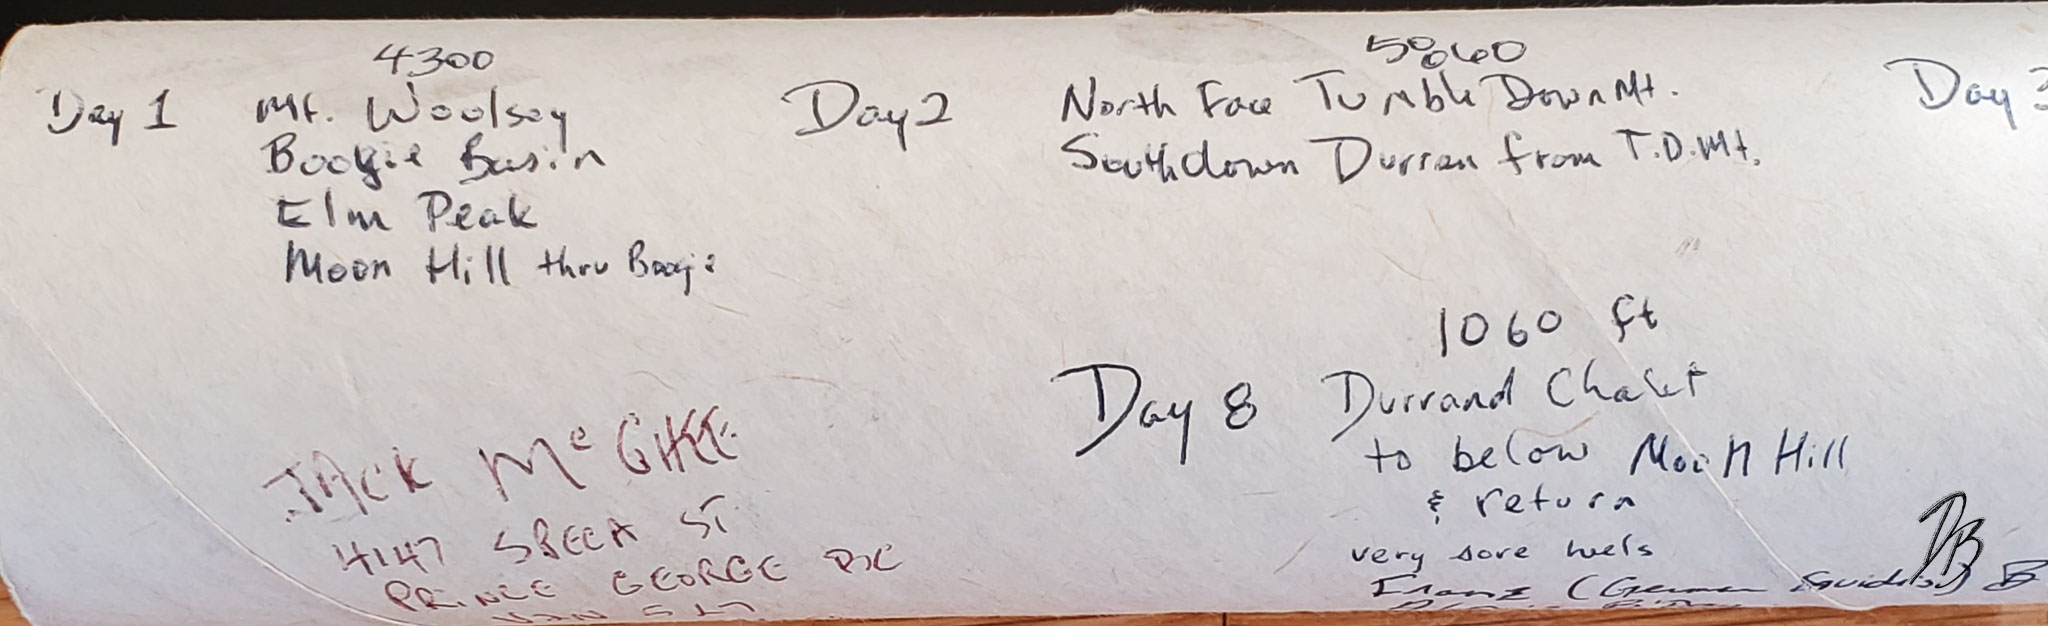 4300
Day 1 Mt. Woolsey
Boogie Basin
Elm Peak
Moon Hill thru Boogie
5060
Day 2 North Face Tumble Down Mt.
South down Durran from T.D. Mt.
Day 3
1060 ft
Day 8 Durrand Chalet
to below Moon Hill
& return
very sore heels
Franz (German Guide)
JACK McGHEE
4147 ST
PRINCE GEORGE BC
DB